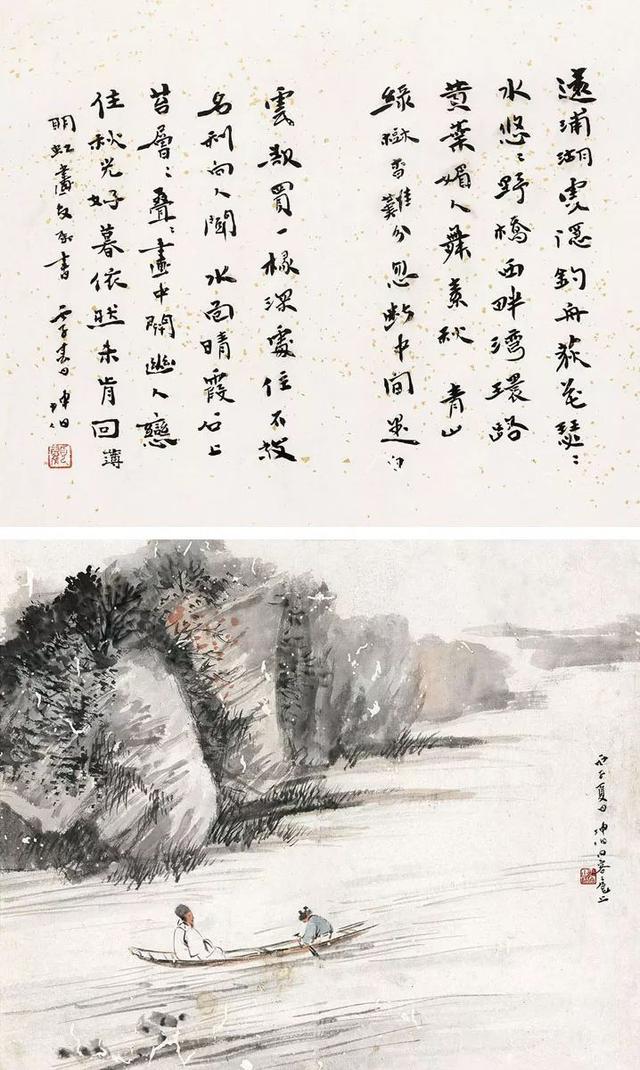 遠浦湖雲隱釣舟荻花瑟〻
水悠〻野橋西畔灣環路
黄葉媚人舞素秋 青山
緑樹杳難分忽斷中間是白
雲欲買一椽深處住不教
名利向人聞 水面晴霞石上
苔層〻疊〻畫中開幽人戀
住秋光好暮依然未肯回薄
明虹畫友 書 丙子春日 坤伯
丙子夏日坤伯